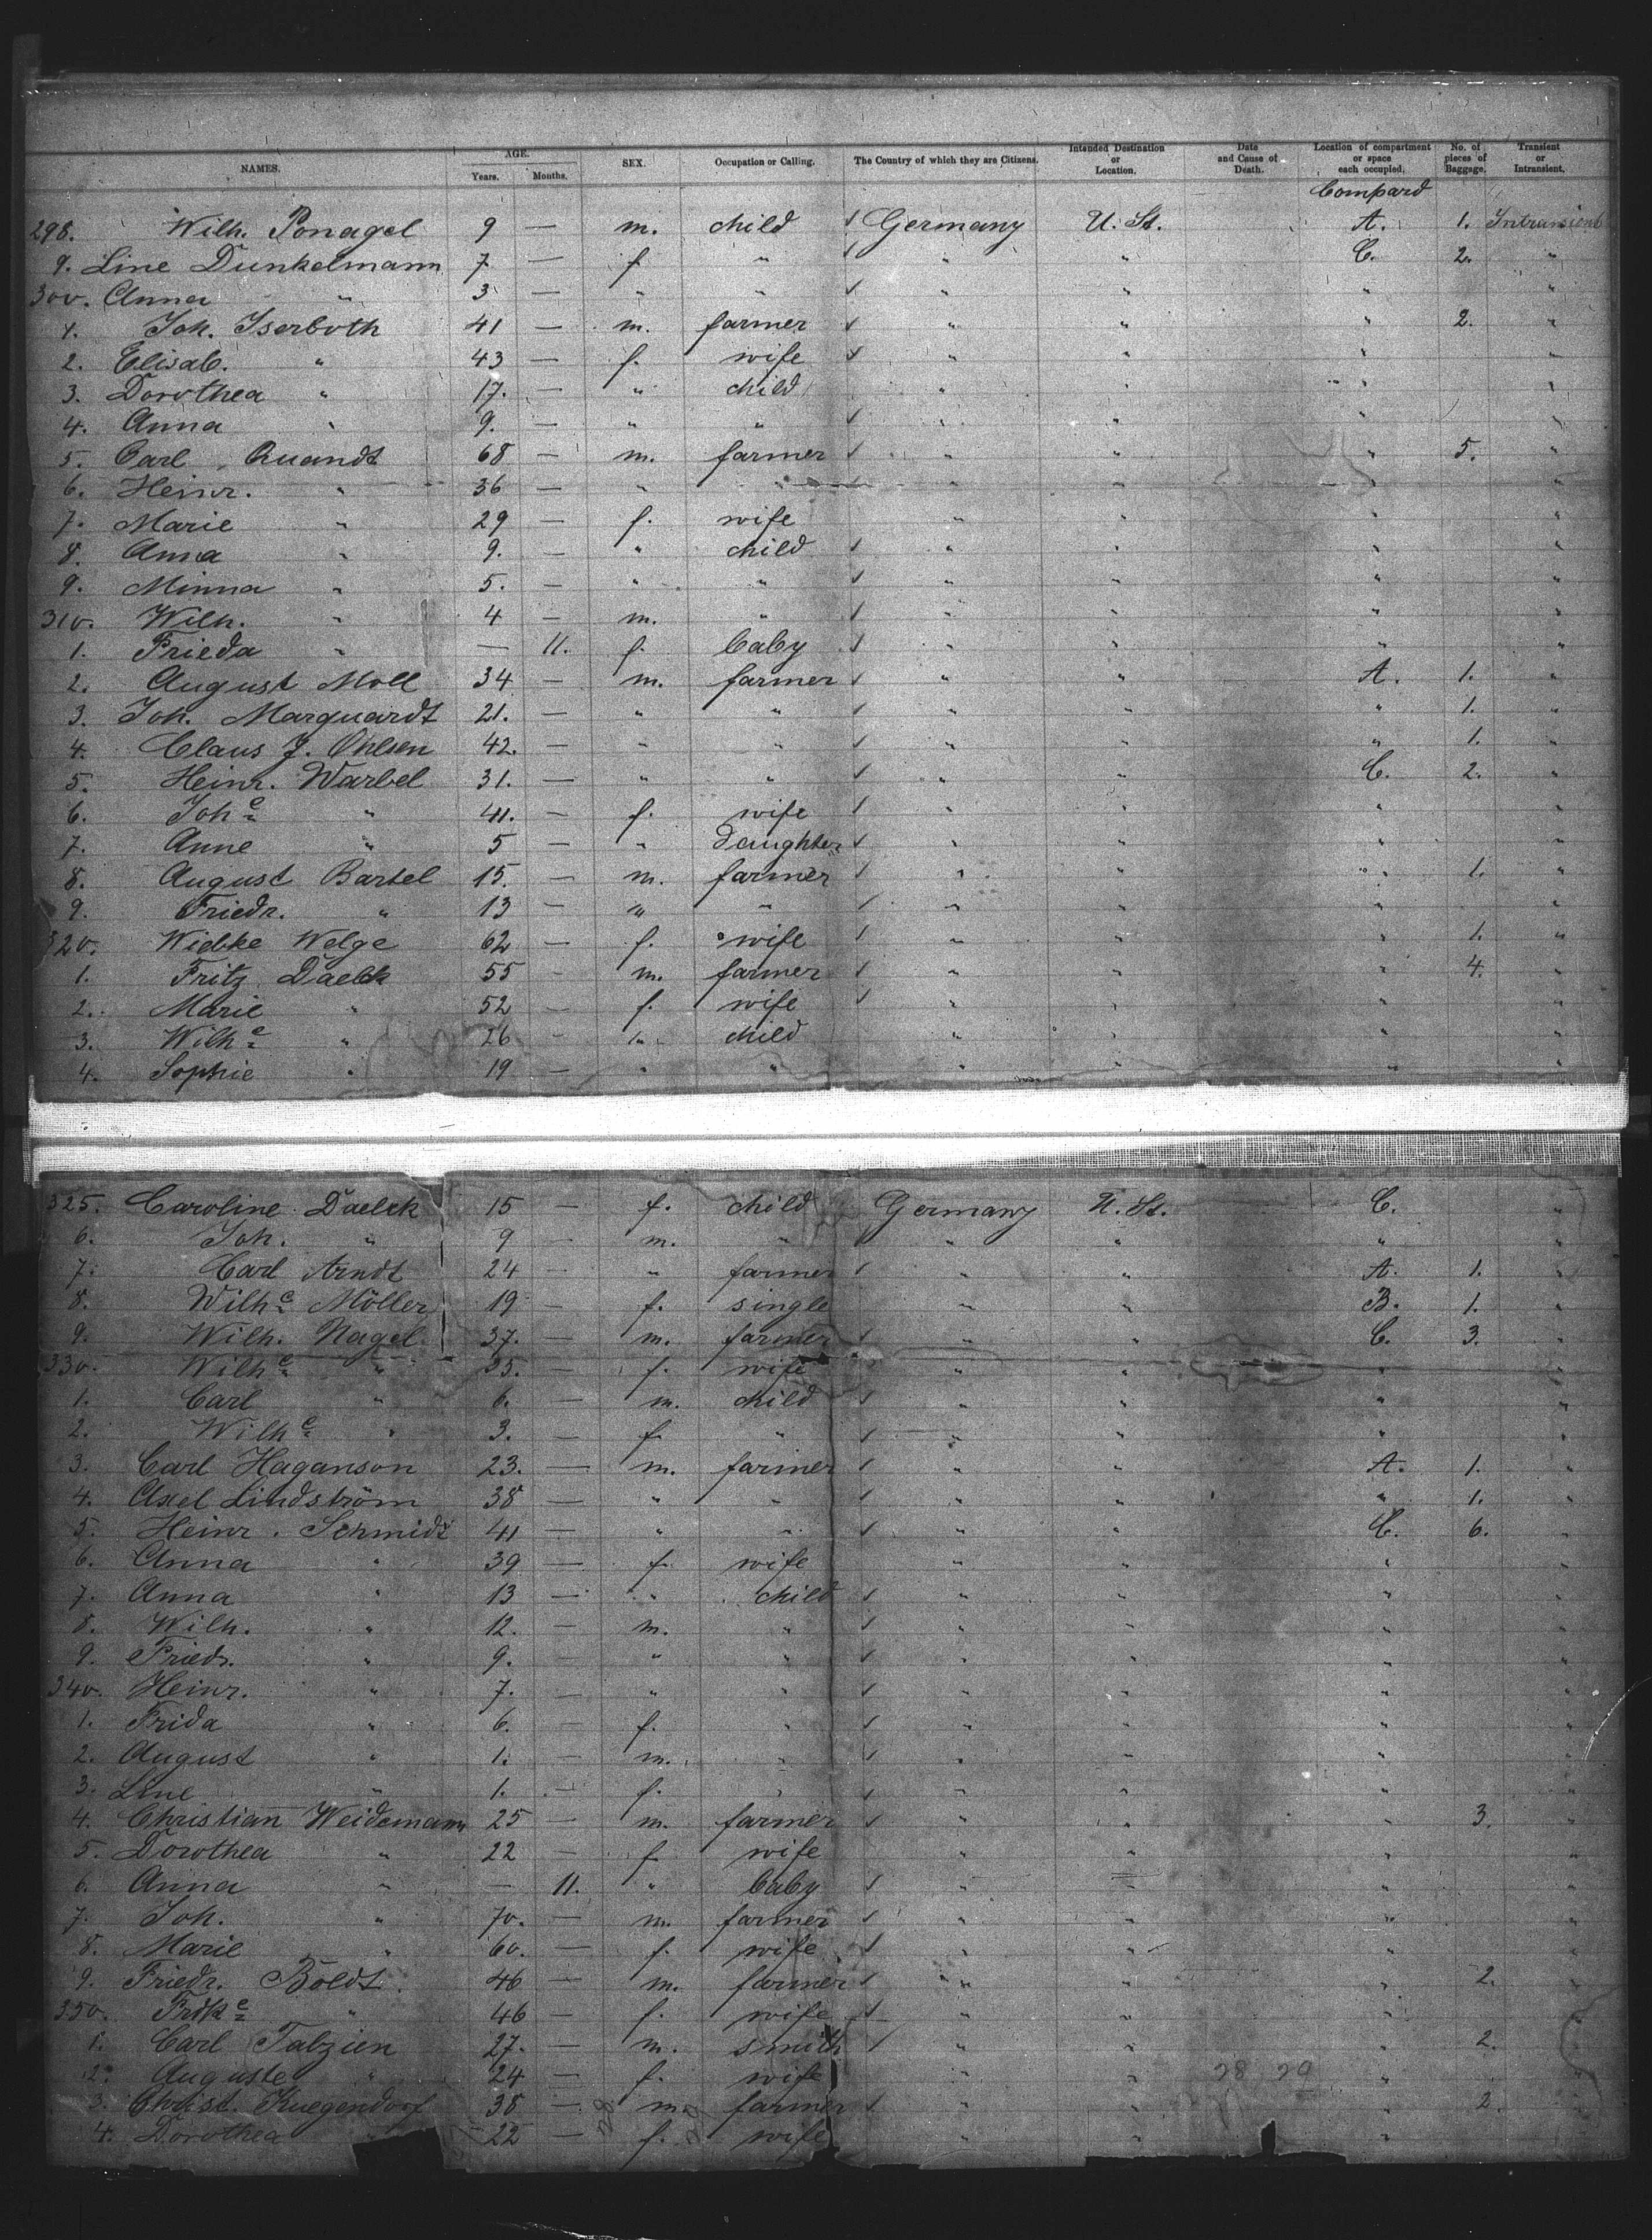 NAMES. AGE. Years. Months. SEX. Occupation or Calling. The Country of which they are Citizens. Intended Destination or Location. Date and Cause of Death. Location of compartment or space each occupied. No. of pieces of Baggage. Transient or Intransient.
Compard
298. Wilh. Ponagel 9 — m. child ✓ Germany U. St. A. 1. Intransient
9. Line Dunkelmann 7 — f. " ✓ " " C. 2. "
300. Anna " 3 — " " ✓ " " " "
1. Joh. Iserboth 41 — m. farmer ✓ " " " 2. "
2. Elisab. " 43 — f. wife ✓ " " " "
3. Dorothea " 17. — " child " " " "
4. Anna " 9. — " " ✓ " " " "
5. Carl Quandt 68 — m. farmer ✓ " " " 5. "
6. Heinr. " 36 — " " " " " "
7. Marie " 29 — f. wife " " " "
8. Anna " 9. — " child ✓ " " " "
9. Minna " 5. — " " ✓ " " " "
310. Wilh. " 4 — m. " ✓ " " " "
1. Frieda " — 11. f. baby ✓ " " " "
2. August Moll 34 — m. farmer ✓ " " A. 1. "
3. Joh. Marquardt 21. — " " ✓ " " " 1. "
4. Claus J. Ohlsen 42. — " " ✓ " " " 1. "
5. Heinr. Warbel 31. — " " ✓ " " C. 2. "
6. Johe " 41. — f. wife ✓ " " " "
7. Anne " 5 — " daughter ✓ " " " "
8. August Bartel 15. — m. farmer ✓ " " " 1. "
9. Friedr. " 13 — " " ✓ " " " "
320. Wiebke Welge 62 — f. wife ✓ " " " 1. "
1. Fritz Daelck 55 — m. farmer ✓ " " " 4. "
2. Marie " 52 — f. wife ✓ " " " "
3. Wilhe " 26 — " child " " " "
4. Sophie " 19 — " " " " " "
325. Caroline Daelck 15 — f. child Germany U. St. C. "
6. Joh. " 9 — m. " " " " "
7. Carl Arndt 24 — " farmer ✓ " " A. 1. "
8. Wilhe Möller 19 — f. single " " B. 1. "
9. Wilh. Nagel 37. — m. farmer ✓ " " C. 3. "
330. Wilhe " 35. — f. wife " " " "
1. Carl " 6. — m. child ✓ " " " "
2. Wilhe " 3. — f. " ✓ " " " "
3. Carl Haganson 23. — m. farmer ✓ " " A. 1. "
4. Axel Lindström 38 — " " ✓ " " " 1. "
5. Heinr. Schmidt 41 — " " ✓ " " C. 6. "
6. Anna " 39 — f. wife " " " "
7. Anna " 13 — " child ✓ " " " "
8. Wilh. " 12. — m. " ✓ " " " "
9. Friedr. " 9. — " " ✓ " " " "
340. Heinr. " 7. — " " ✓ " " " "
1. Frida " 6. — f. " ✓ " " " "
2. August " 1. — m. " ✓ " " " "
3. Line " 1. — f. " ✓ " " " "
4. Christian Weidemann 25 — m. farmer ✓ " " " 3. "
5. Dorothea " 22 — f. wife " " " "
6. Anna " — 11. " baby ✓ " " " "
7. Joh. " 70. — m. farmer ✓ " " " "
8. Marie " 60. — f. wife ✓ " " " "
9. Friedr. Boldt 46 — m. farmer ✓ " " " 2. "
350. Frdke " 46 — f. wife ✓ " " " "
1. Carl Tabzien 27. — m. smith ✓ " " " 2. "
2. Auguste " 24 — f. wife " " " "
28 29
3. Christ. Kuegendorf 38 — m. farmer ✓ " " " 2 "
4. Dorothea " 22 — f. wife " " " "